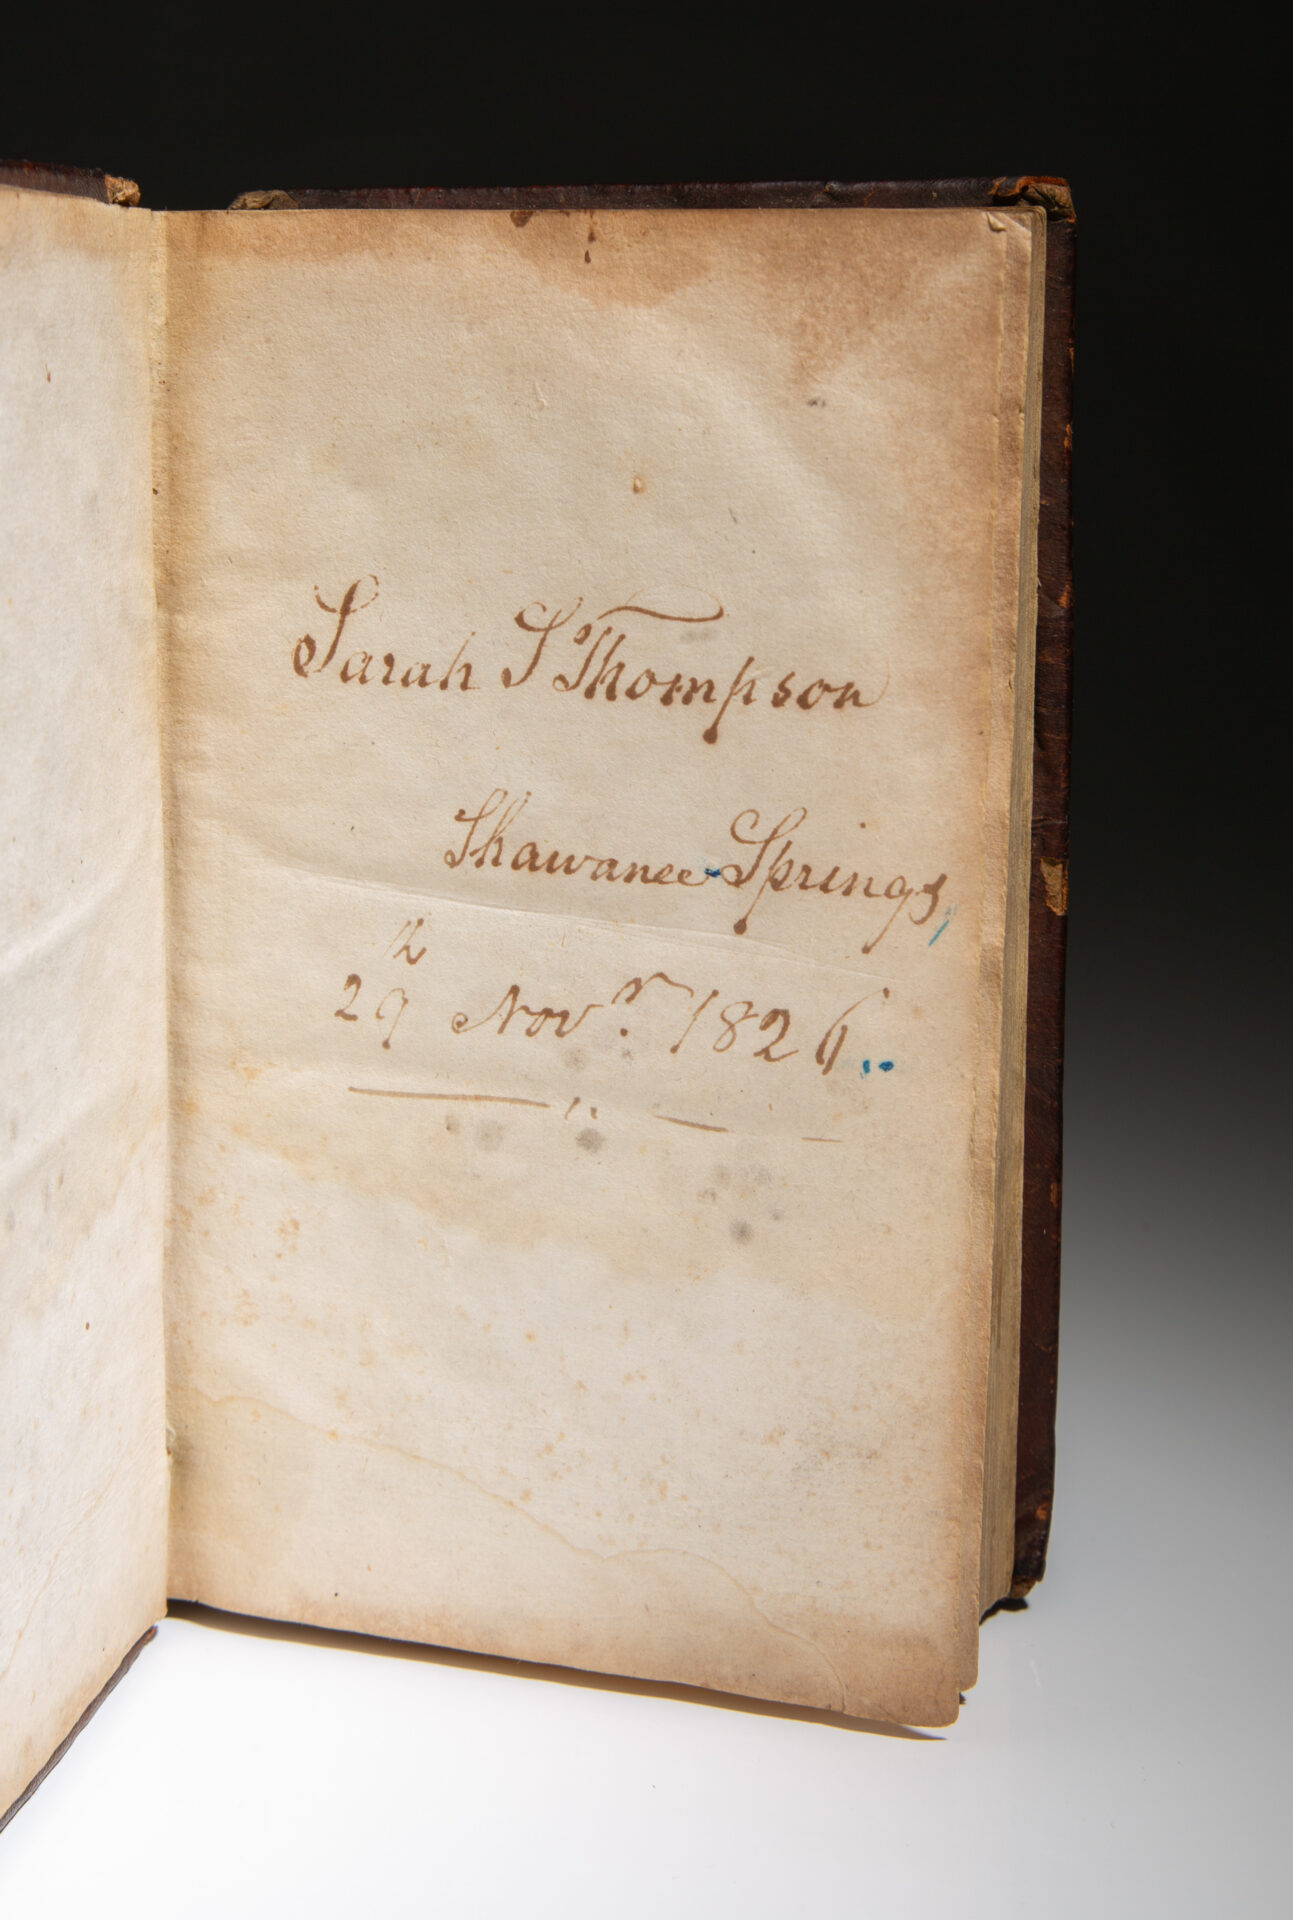 Sarah S Thompson
Shawanee-Springs,
29th Novr. 1826..